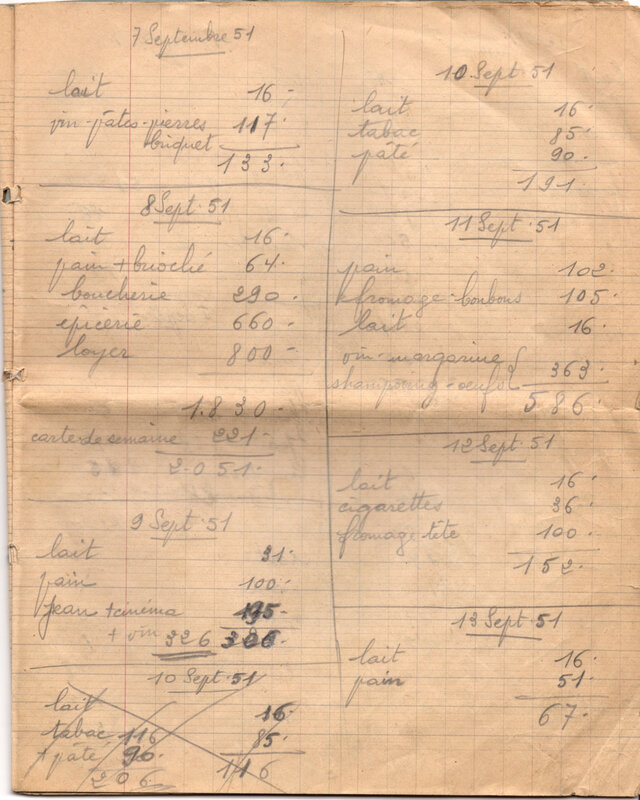 7 Septembre 51
lait 16 -
vin - pâtes - pierres 117
briquet
133 -
8 Sept. 51
lait 16 -
pain + brioché 64 -
boucherie 290 -
épicerie 660 -
loyer 800 -
1.830 -
carte de semaine 221 -
2.051 -
9 Sept. 51
lait 31 -
pain 100 -
Jean + cinéma 195 -
+ vin 326 326 -
10 Sept 51
lait 16 -
tabac 116 85 -
+ pâté 90 - 116
206
10 Sept. 51
lait 16 -
tabac 85 -
pâté 90 -
191 -
11 Sept. 51
pain 102 -
fromage - bonbons 105 -
lait 16 -
vin - margarine
shampoing - oeufs 363 -
586 -
12 Sept. 51
lait 16 -
cigarettes 36 -
fromage tête 100 -
152 -
13 Sept. 51
lait 16 -
pain 51 -
67 -